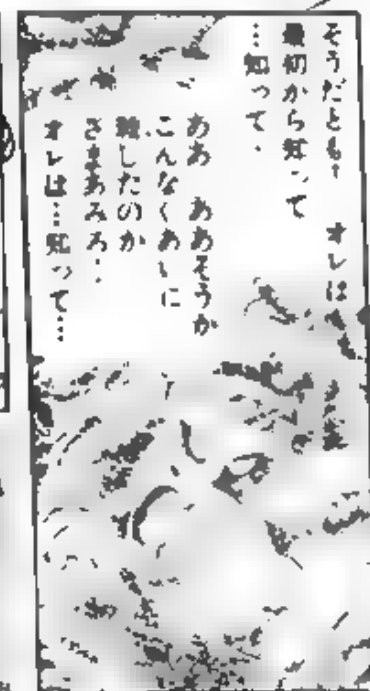 そうだとも！　オレは
最初から知って
…知って．
ああ　ああそうか
こんなくあいに
殺したのか
ざまあみろ．．
オレは…知って…